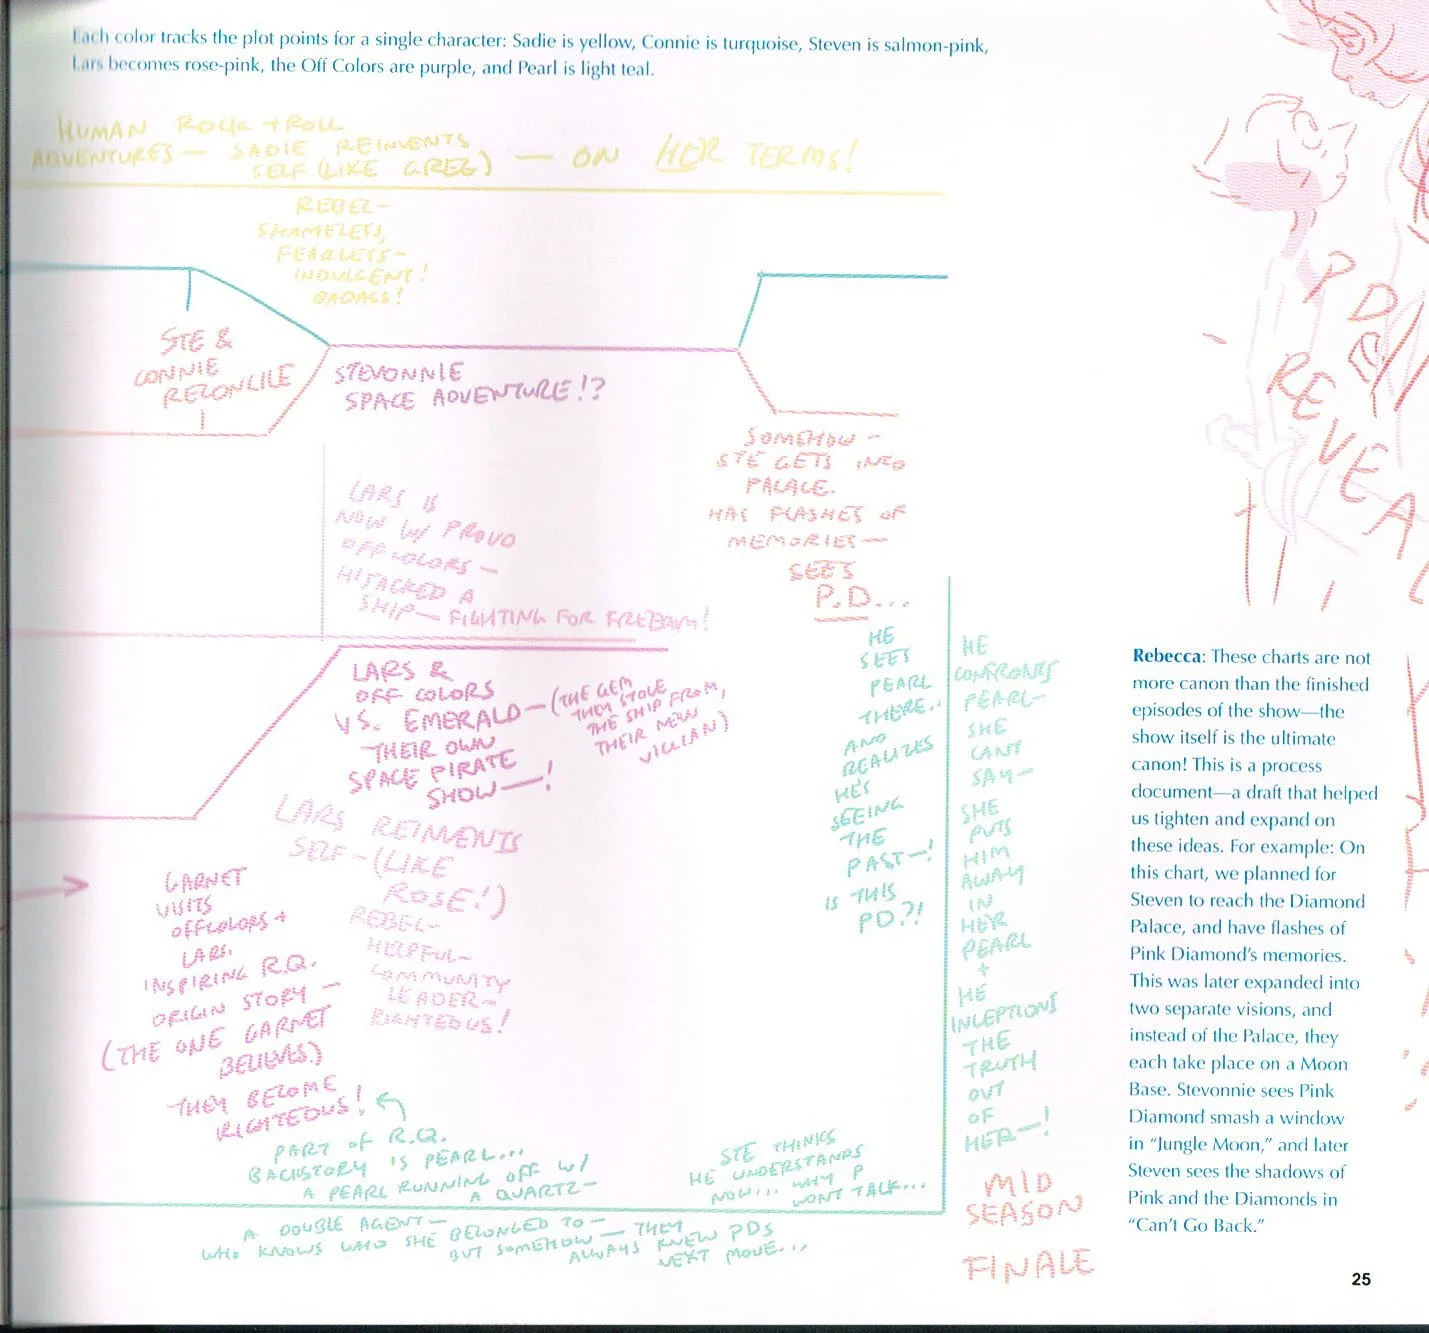 Each color tracks the plot points for a single character: Sadie is yellow, Connie is turquoise, Steven is salmon-pink,
Lars becomes rose-pink, the Off Colors are purple, and Pearl is light teal.
HUMAN ROCK + ROLL
ADVENTURES — SADIE REINVENTS
SELF (LIKE GREG) — ON HER TERMS!
REBEL —
SHAMELESS,
FEARLESS —
INDULGENT!
BADASS!
STE &
CONNIE
RECONCILE
STEVONNIE
SPACE ADVENTURE!?
LARS IS
NOW W/ PROUD
OFF COLORS —
HIJACKED A
SHIP — FIGHTING FOR FREEDOM!
SOMEHOW —
STE GETS INTO
PALACE.
HAS FLASHES OF
MEMORIES —
SEES
P.D...
LARS &
OFF COLORS
VS. EMERALD — (THE GEM
THEY STOLE
THE SHIP FROM,
THEIR NEW
VILLIAN)
THEIR OWN
SPACE PIRATE
SHOW —!
LARS REINVENTS
SELF — (LIKE
ROSE!)
REBEL —
HELPFUL —
COMMUNITY
LEADER —
RIGHTEOUS!
GARNET
VISITS
OFFCOLORS +
LARS.
INSPIRING R.Q.
ORIGIN STORY —
(THE ONE GARNET
BELIEVES.)
THEY BECOME
RIGHTEOUS!
PART OF R.Q.
BACKSTORY IS PEARL...
A PEARL RUNNING OFF W/
A QUARTZ —
A DOUBLE AGENT —
WHO KNOWS WHO SHE BELONGED TO —
BUT SOMEHOW — THEY
ALWAYS KNEW PDS
NEXT MOVE...
STE THINKS
HE UNDERSTANDS
NOW... WHY P
WONT TALK...
HE
SEES
PEARL
THERE..
AND
REALIZES
HE'S
SEEING
THE
PAST —!
IS THIS
PD?!
HE
CONFRONTS
PEARL —
SHE
CANT
SAY —
SHE
PUTS
HIM
AWAY
IN
HER
PEARL
+
HE
INCEPTIONS
THE
TRUTH
OUT
OF
HER —!
MID
SEASON
FINALE
PD
REVEAL
Rebecca: These charts are not
more canon than the finished
episodes of the show—the
show itself is the ultimate
canon! This is a process
document—a draft that helped
us tighten and expand on
these ideas. For example: On
this chart, we planned for
Steven to reach the Diamond
Palace, and have flashes of
Pink Diamond's memories.
This was later expanded into
two separate visions, and
instead of the Palace, they
each take place on a Moon
Base. Stevonnie sees Pink
Diamond smash a window
in "Jungle Moon," and later
Steven sees the shadows of
Pink and the Diamonds in
"Can't Go Back."
25